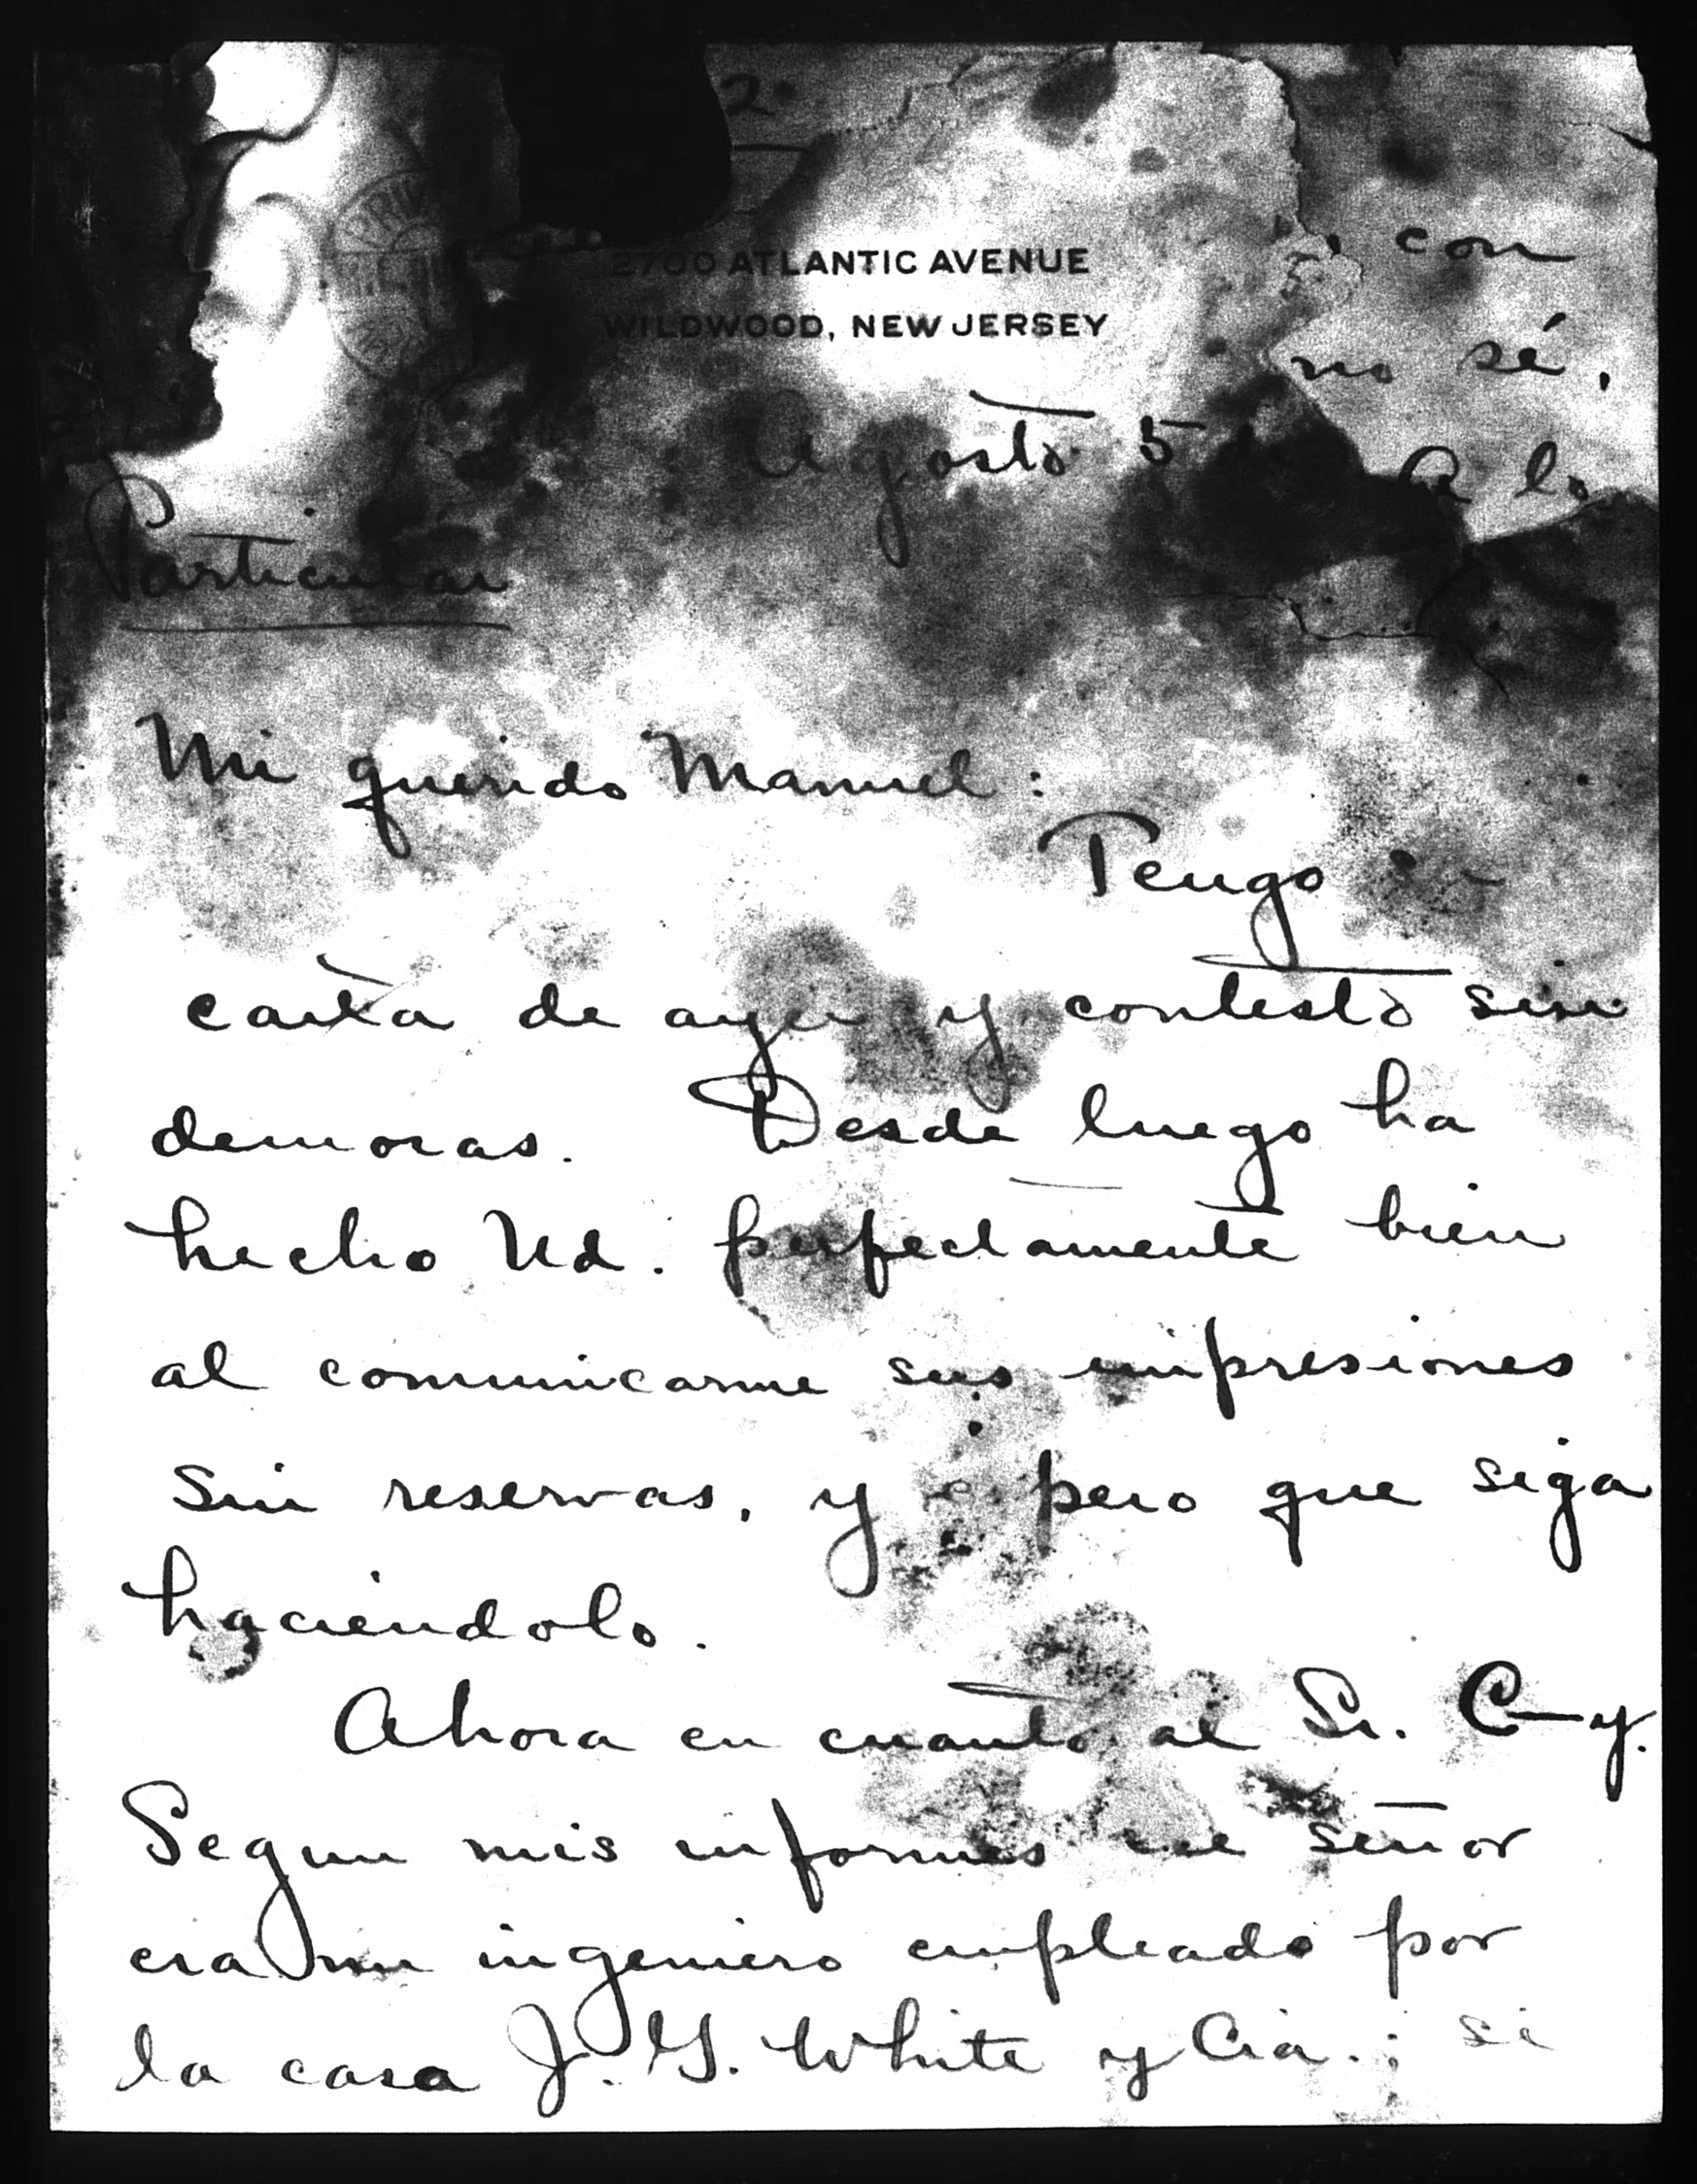 2º
2700 ATLANTIC AVENUE
con
WILDWOOD, NEW JERSEY
no sé,
Agosto 5 de
A lo
Particular
Mi querido Manuel:
Tengo
carta de ayer y contesto sin
demoras. Desde luego ha
hecho Ud. perfectamente bien
al comunicarme sus impresiones
sin reservas, y espero que siga
haciéndolo.
Ahora en cuanto al Sr. C—y.
Segun mis informes ese señor
era un ingeniero empleado por
la casa J. G. White y Cia.; si